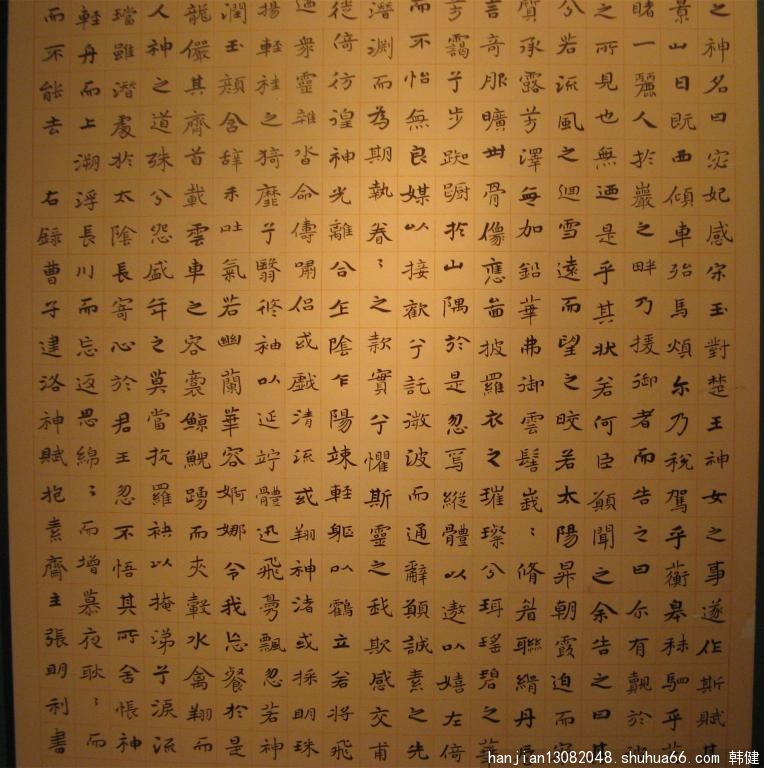 之神名曰宓妃感宋玉對楚王神女之事遂作斯賦其
景山日既西傾車殆馬煩尔乃稅駕乎蘅皋秣駟乎
睹一麗人於巖之畔乃援御者而告之曰尔有覿於
之所見也無迺是乎其狀若何臣願聞之余告之曰其
兮若流風之迴雪遠而望之皎若太陽昇朝霞迫而
質承露芳澤無加鉛華弗御雲髻峩〻脩眉聯娟丹
言奇服曠世骨像應圖披羅衣之璀璨兮珥瑤碧之華
芳靄兮步踟躕於山隅於是忽焉縱體以遨以嬉左倚
而不怡無良媒以接歡兮託微波而通辭願誠素之先
潛淵而為期執眷〻之款實兮懼斯靈之我欺感交甫
徙倚彷徨神光離合乍陰乍陽竦輕軀以鶴立若將飛
迺衆靈雜沓命儔嘯侶或戲清流或翔神渚或採明珠
揚輕袿之猗靡兮翳脩袖以延竚體迅飛鳧飄忽若神
潤玉顏含辭未吐氣若幽蘭華容婀娜令我忘餐於是
龍儼其齊首載雲車之容裔鯨鯢踴而夾轂水禽翔而
人神之道殊兮怨盛年之莫當抗羅袂以掩涕兮淚流
璫雖潛處於太陰長寄心於君王忽不悟其所舍悵神
輕舟而上溯浮長川而忘返思綿〻而增慕夜耿〻而
而不能去 右錄曹子建洛神賦抱素齋主張明利書
hanjian13082048.shuhua66.com 韩健